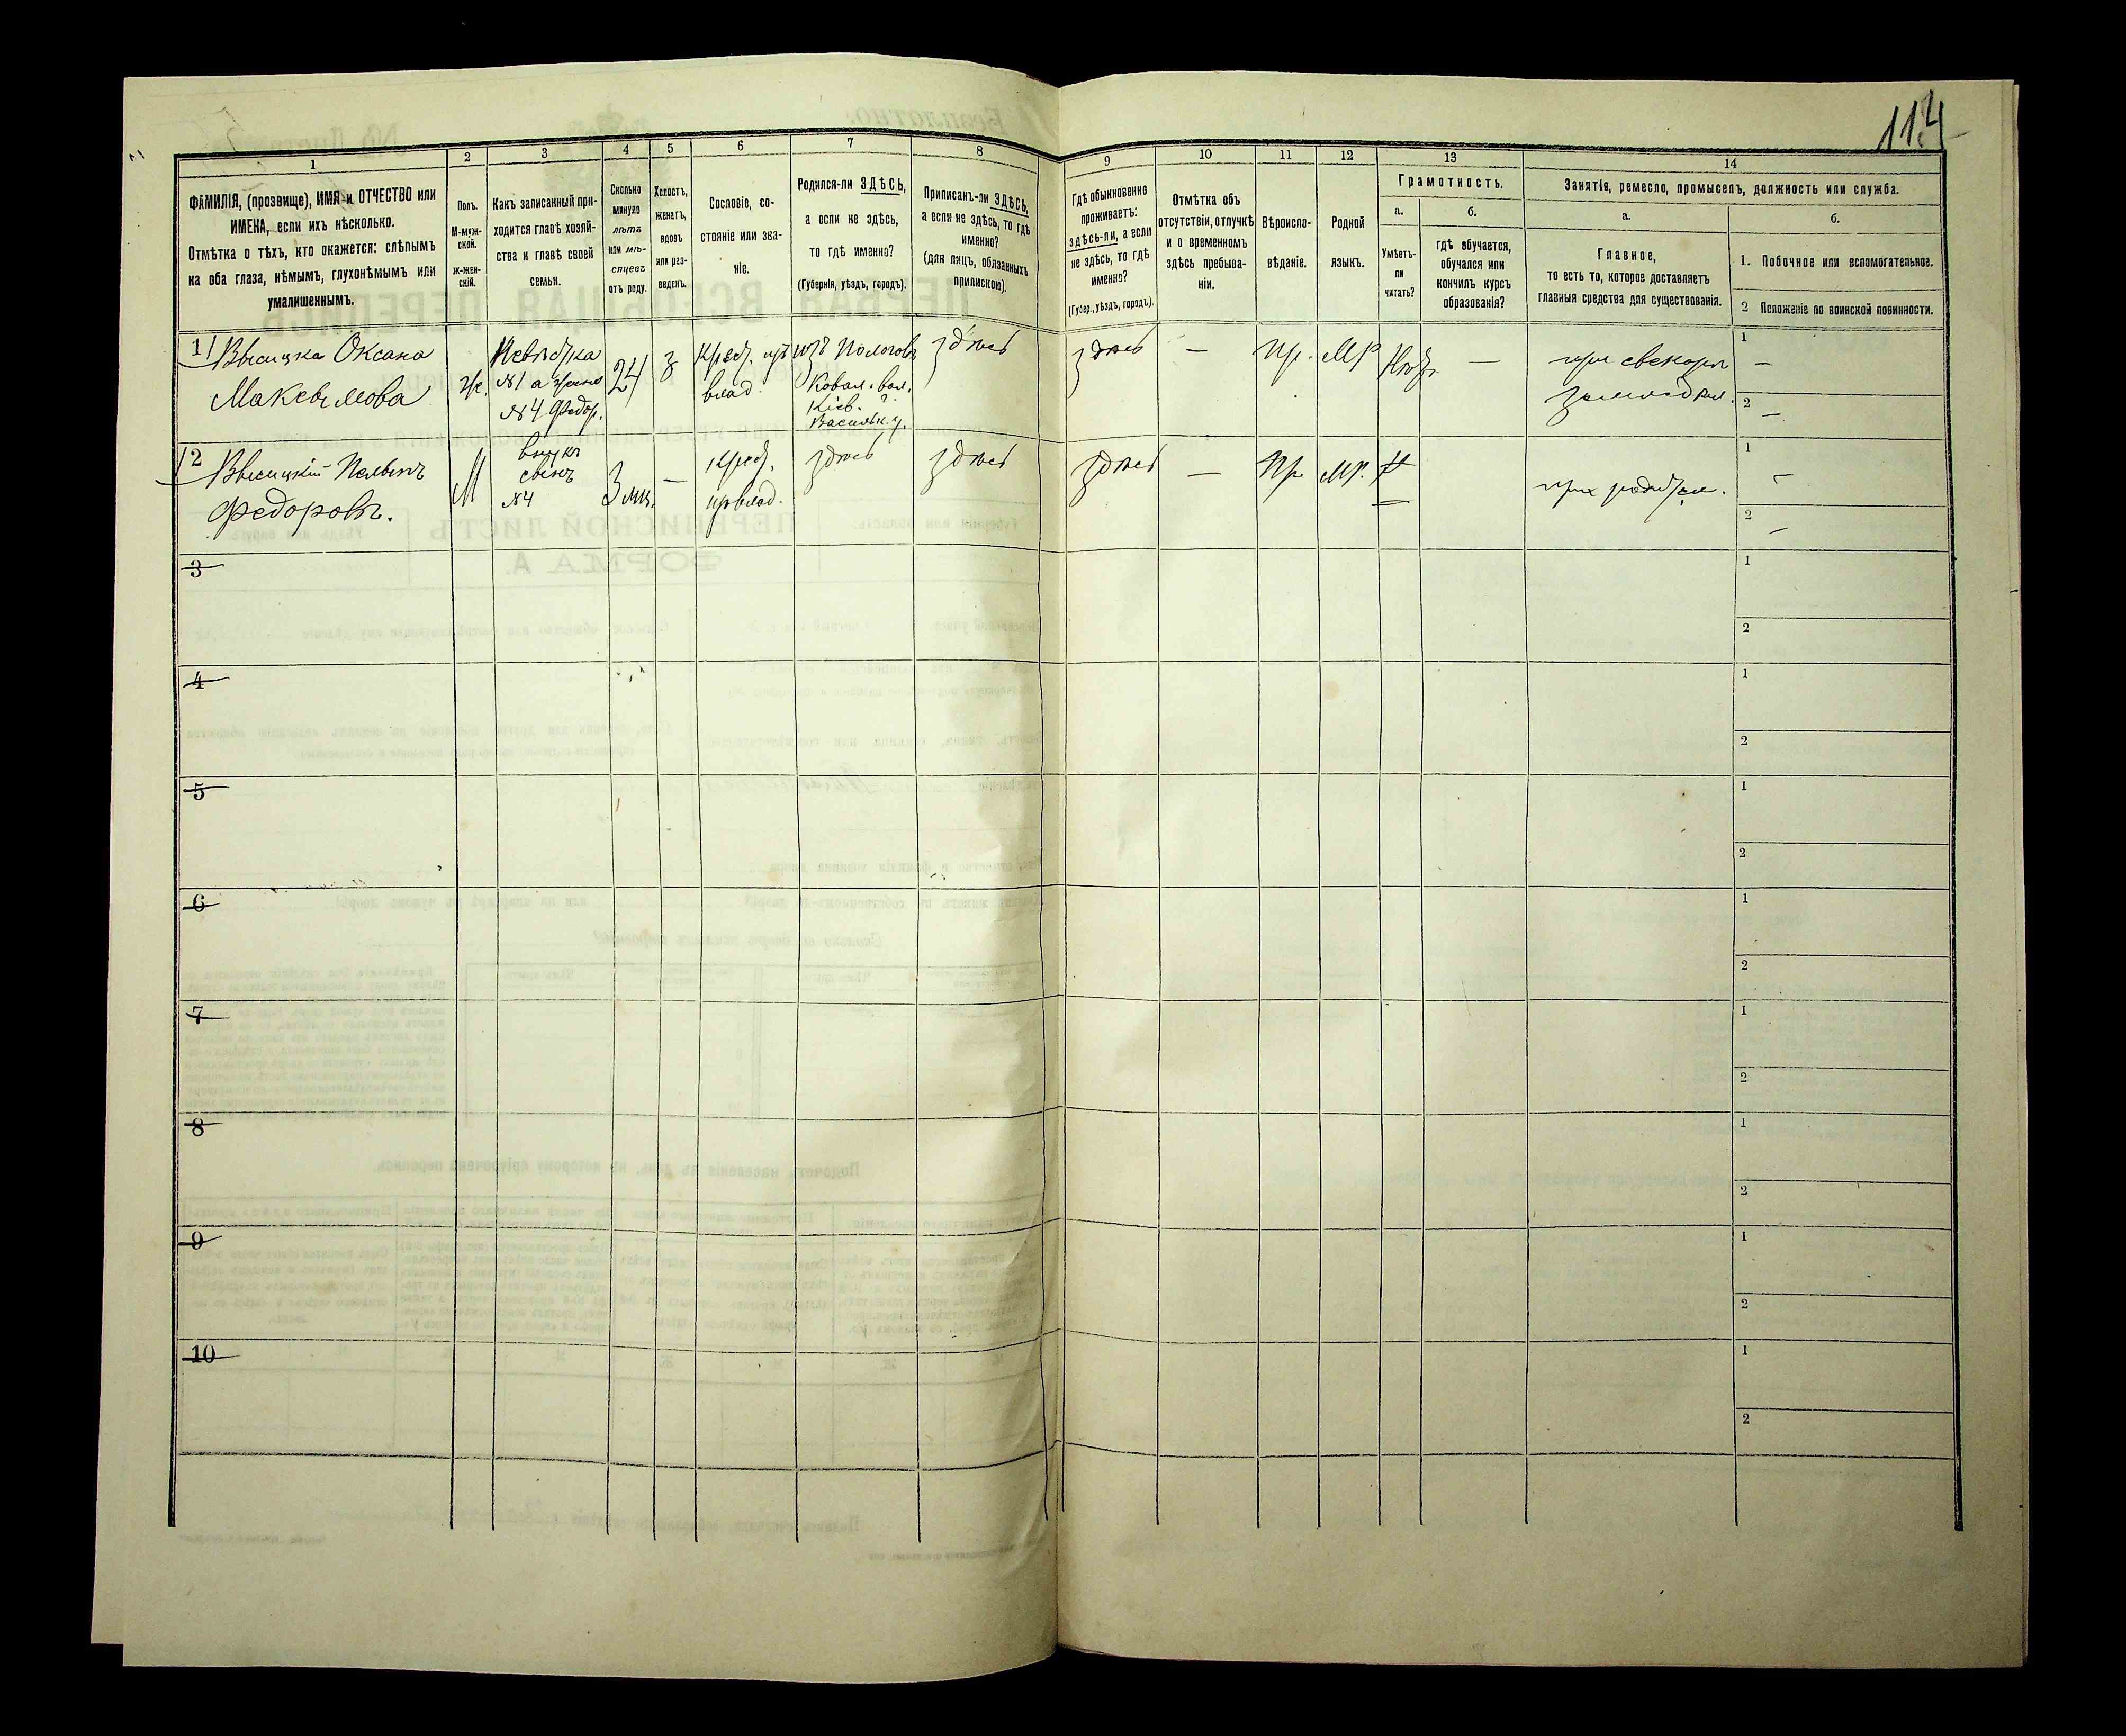 114
1
2
3
4
5
6
7
8
9
10
11
12
13
14
ФАМИЛІЯ, (прозвище), ИМЯ и ОТЧЕСТВО или
ИМЕНА, если ихъ нѣсколько.
Отмѣтка о тѣхъ, кто окажется: слѣпымъ
на оба глаза, нѣмымъ, глухонѣмымъ или
умалишеннымъ.
Полъ.
М-муж-
ской.
ж-жен-
скій.
Какъ записанный при-
ходится главѣ хозяй-
ства и главѣ своей
семьи.
Сколько
минуло
лѣтъ
или мѣ-
сяцевъ
отъ роду.
Холостъ,
женатъ,
вдовъ
или раз-
веденъ.
Сословіе, со-
стояніе или зва-
ніе.
Родился-ли ЗДѢСЬ,
а если не здѣсь,
то гдѣ именно?
(Губернія, уѣздъ, городъ).
Приписанъ-ли ЗДѢСЬ,
а если не здѣсь, то гдѣ
именно?
(для лицъ, обязанныхъ
припискою).
Гдѣ обыкновенно
проживаетъ:
здѣсь-ли, а если
не здѣсь, то гдѣ
именно?
(Губер., уѣздъ, городъ).
Отмѣтка объ
отсутствіи, отлучкѣ
и о временномъ
здѣсь пребыва-
ніи.
Вѣроиспо-
вѣданіе.
Родной
языкъ.
Грамотность.
а.
Умѣетъ-
ли
читать?
б.
гдѣ обучается,
обучался или
кончилъ курсъ
образованія?
Занятіе, ремесло, промыселъ, должность или служба.
а.
Главное,
то есть то, которое доставляетъ
главныя средства для существованія.
б.
1. Побочное или вспомогательное.
2 Положеніе по воинской повинности.
1
Оксана
Максимова
Же.
Невѣстка
№1 а жена
№4 Федор.
24
з
Крест. изъ
влад.
изъ Пологовъ
Ковал. вол.
Кіев. г.
Васильк. у.
здѣсь
здѣсь
—
Пр.
МР
Нѣтъ
—
при свекорѣ
земледѣл.
1
—
2
—
2
Федоровъ.
М
внукъ
сынъ
№4
3 мц.
—
крест.
из влад.
здѣсь
здѣсь
здѣсь
—
Пр
МР.
Н
—
при родител.
1
—
2
—
3
1
2
4
1
2
5
1
2
6
1
2
7
1
2
8
1
2
9
1
2
10
1
2